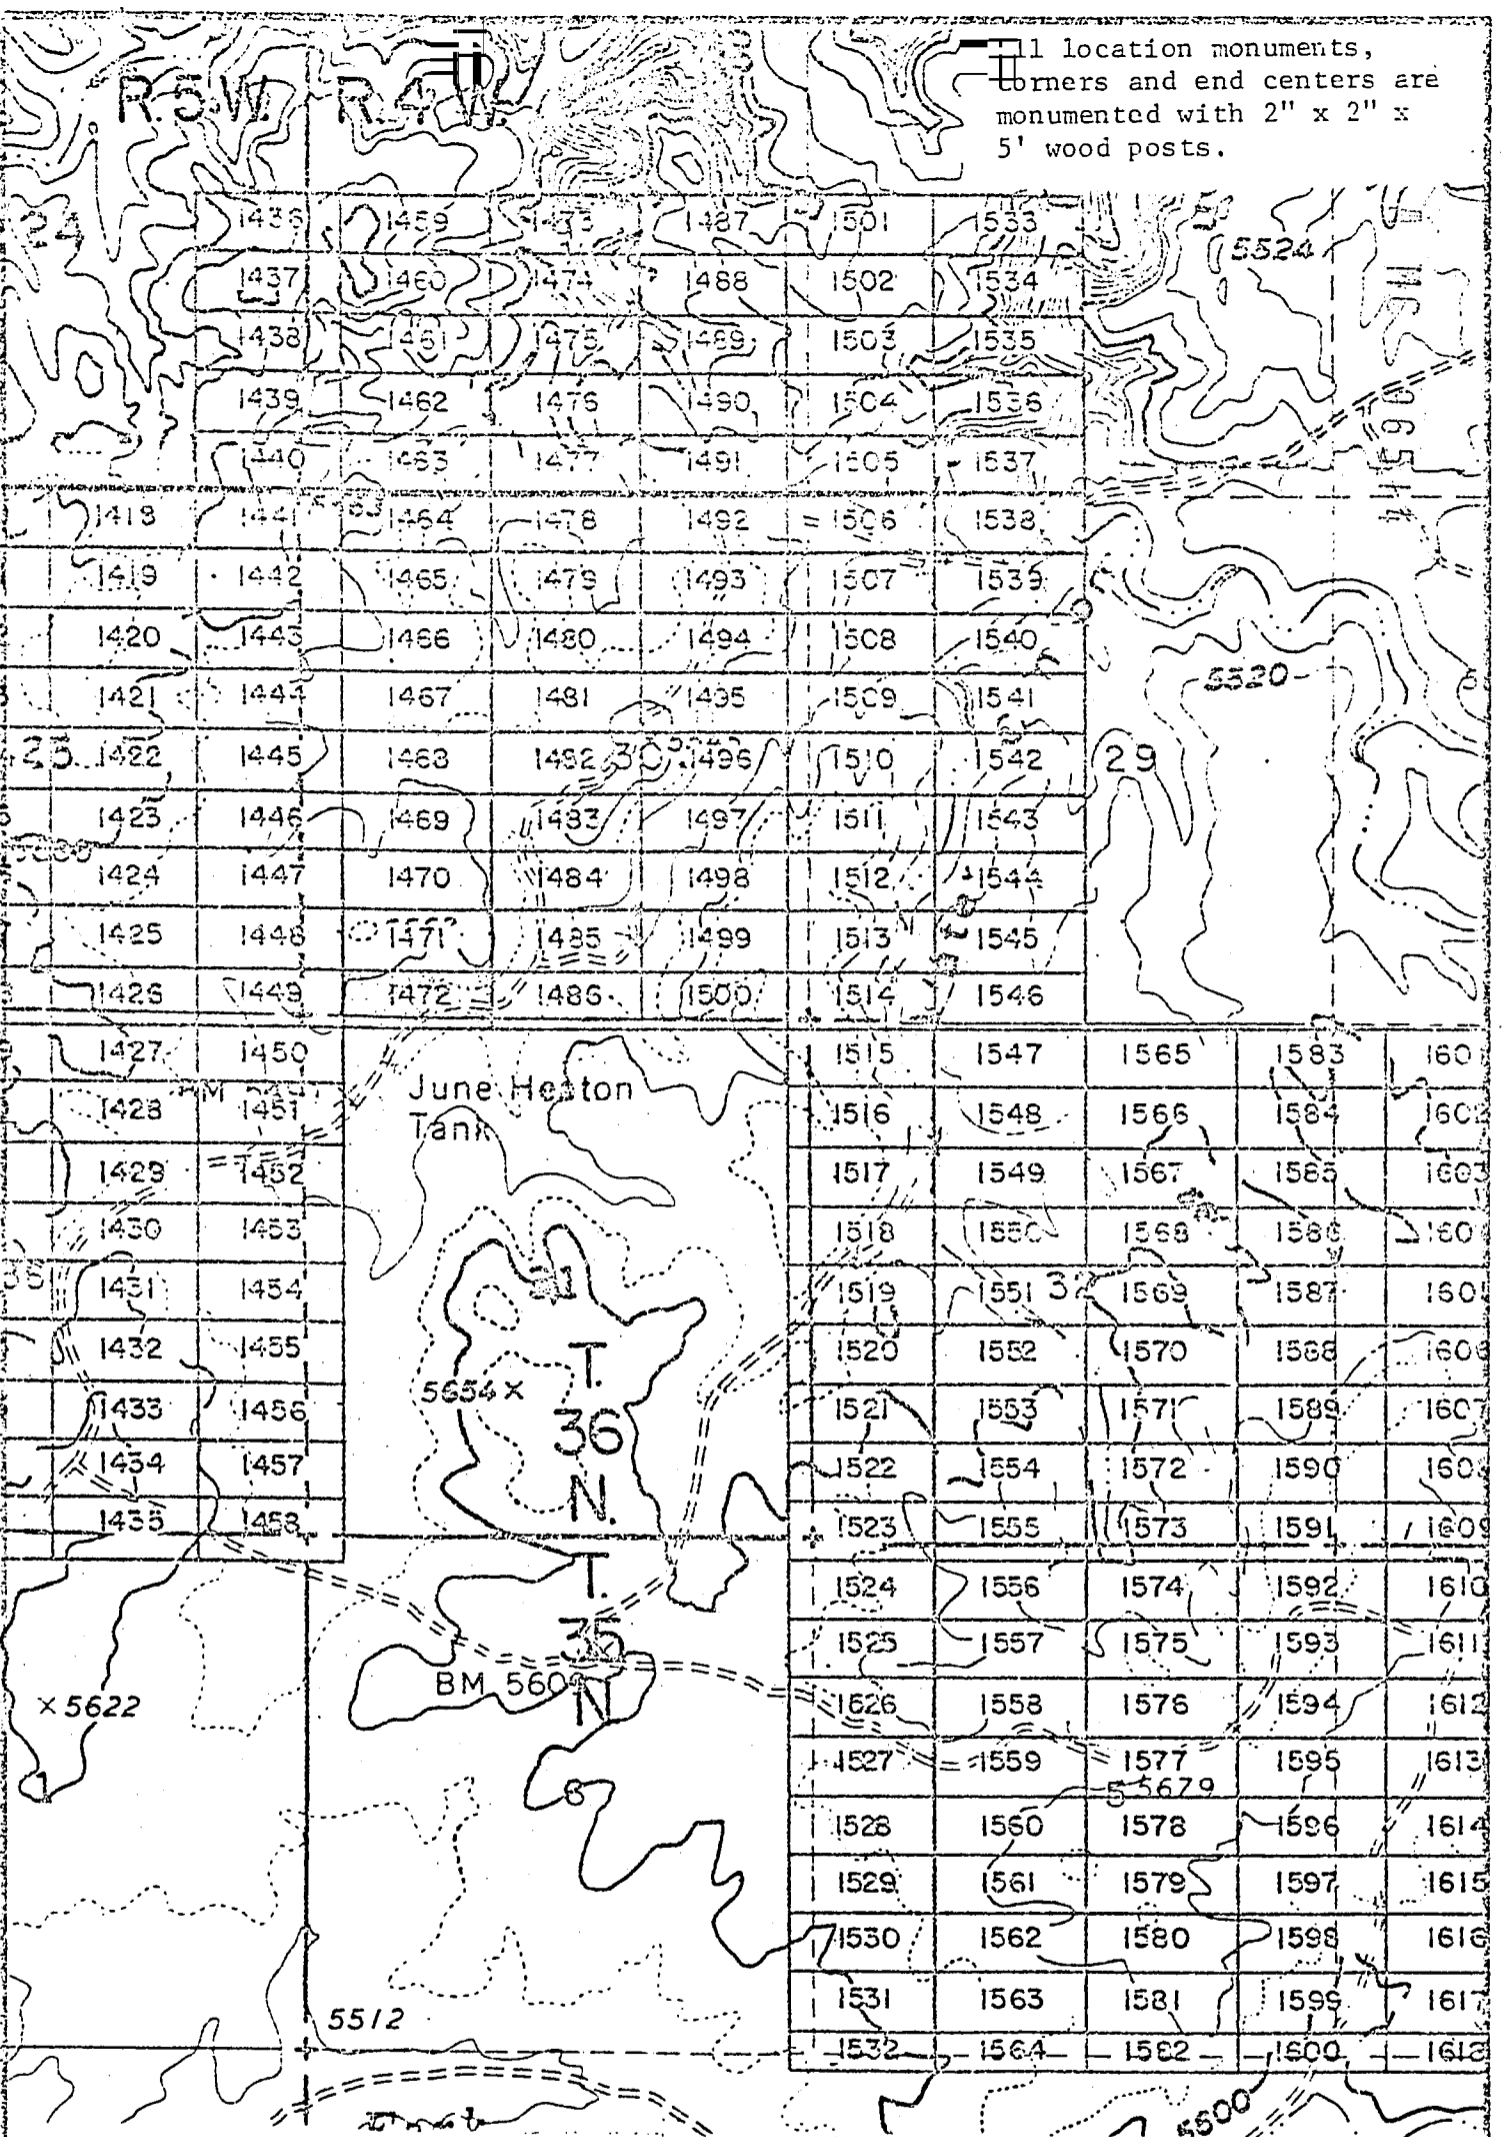 R.5W. R.4W.
11 location monuments,
corners and end centers are
monumented with 2" x 2" x
5' wood posts.
24 1436 1459 1473 1487 1501 1533
5524
1437 1460 1474 1488 1502 1534
1438 1461 1475 1489 1503 1535
1439 1462 1476 1490 1504 1536
1440 1463 1477 1491 1505 1537
1418 1441 1464 1478 1492 1506 1538
1419 1442 1465 1479 1493 1507 1539
1420 1443 1466 1480 1494 1508 1540
1421 1444 1467 1481 1495 1509 1541
5520
25 1422 1445 1468 1482 30 1496 1510 1542 29
1423 1446 1469 1483 1497 1511 1543
1424 1447 1470 1484 1498 1512 1544
1425 1448 1471 1485 1499 1513 1545
1426 1449 1472 1486 1500 1514 1546
1427 1450 1515 1547 1565 1583 160
June Heaton
Tank
1428 BM 1451 1516 1548 1566 1584 160
1429 1452 1517 1549 1567 1585 1603
1430 1453 1518 1550 1568 1586 160
1431 1454 31 1519 1551 32 1569 1587 160
1432 1455 1520 1552 1570 1588 1606
T.
5654 x
1433 1456 36 1521 1553 1571 1589 1607
1434 1457 1522 1554 1572 1590 160
N.
1435 1458 1523 1555 1573 1591 1609
T.
1524 1556 1574 1592 1610
35
1525 1557 1575 1593 1611
BM 560
N
x 5622 1526 1558 1576 1594 1612
1527 1559 1577 1595 1613
1 6 5 5679
1528 1560 1578 1596 1614
1529 1561 1579 1597 1615
1530 1562 1580 1598 1616
1531 1563 1581 1599 1617
5512
1532 1564 1582 1600 1618
5600